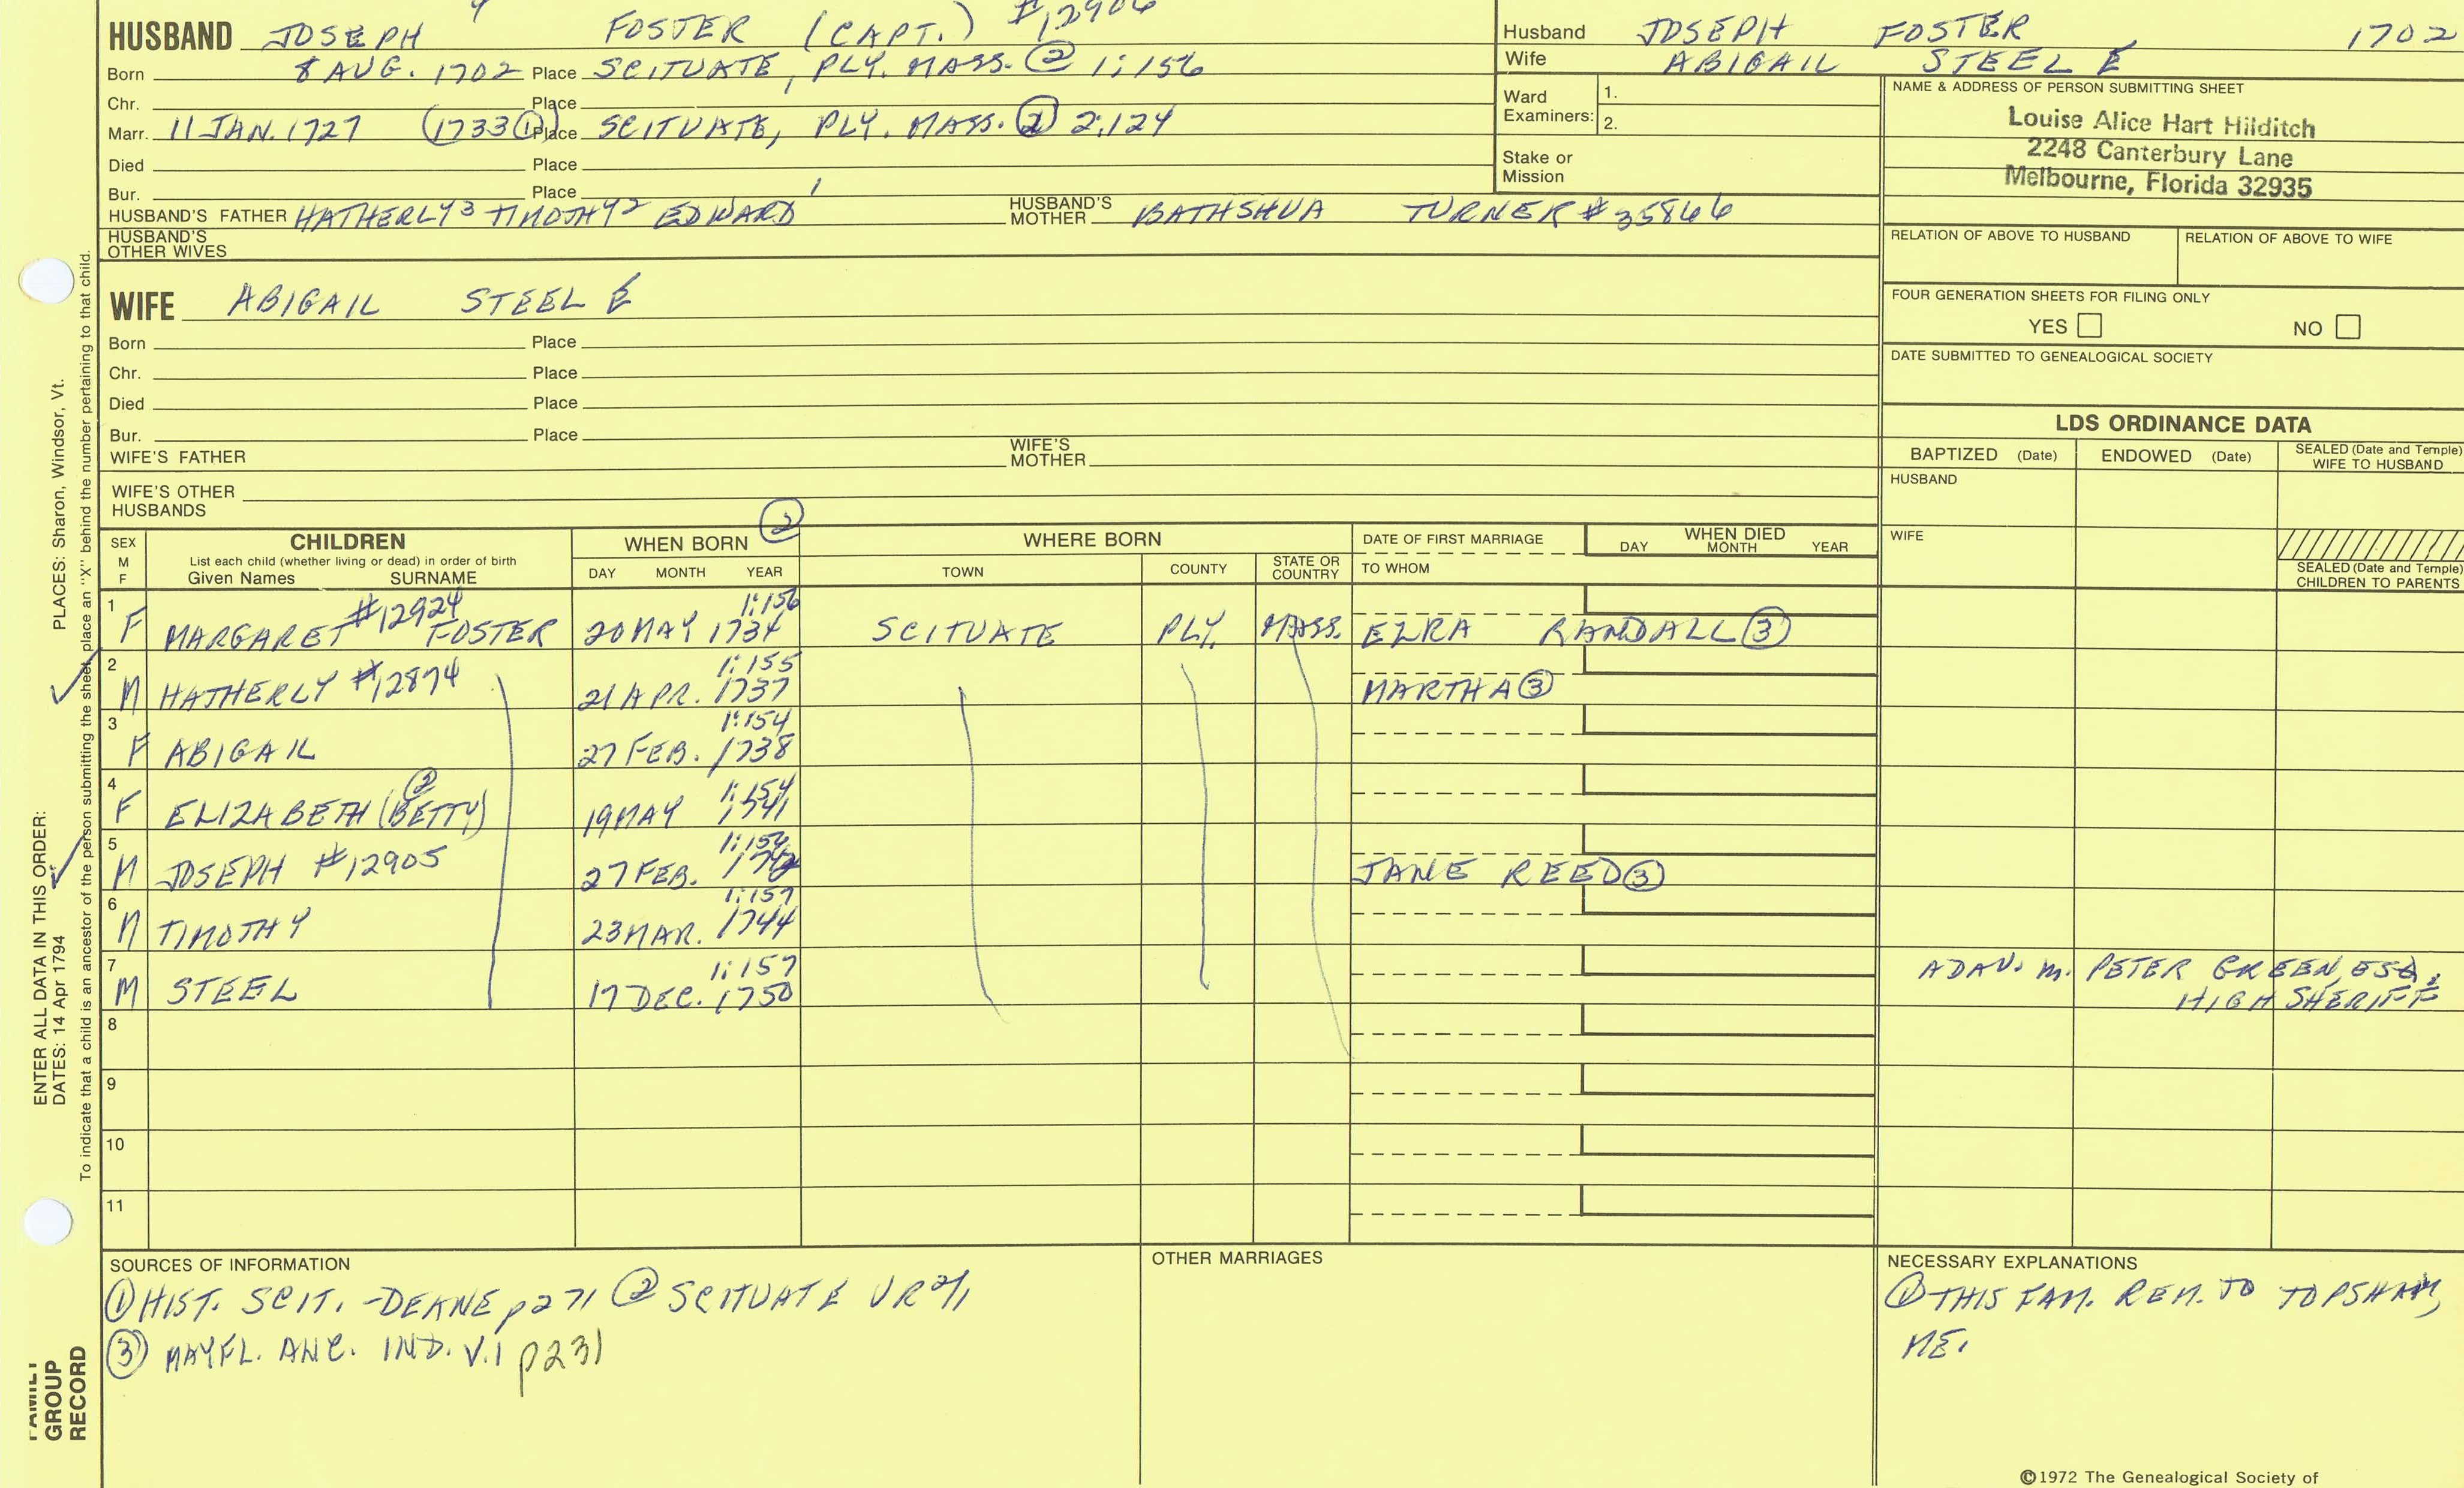 HUSBAND JOSEPH FOSTER (CAPT.) #12906
Born 8 AUG. 1702 Place SCITUATE, PLY. MASS. ② 1:156
Chr. Place
Marr. 11 JAN. 1727 (1733①) Place SCITUATE, PLY. MASS. ② 2:124
Died Place
Bur. Place
HUSBAND'S FATHER HATHERLY3 TIMOTHY2 EDWARD1 HUSBAND'S MOTHER BATHSHUA TURNER #35866
HUSBAND'S OTHER WIVES
Husband JOSEPH FOSTER 1702
Wife ABIGAIL STEEL E
Ward Examiners: 1.
2.
Stake or Mission
NAME & ADDRESS OF PERSON SUBMITTING SHEET
Louise Alice Hart Hilditch
2248 Canterbury Lane
Melbourne, Florida 32935
RELATION OF ABOVE TO HUSBAND RELATION OF ABOVE TO WIFE
FOUR GENERATION SHEETS FOR FILING ONLY
YES NO
DATE SUBMITTED TO GENEALOGICAL SOCIETY
WIFE ABIGAIL STEEL E
Born Place
Chr. Place
Died Place
Bur. Place
WIFE'S FATHER WIFE'S MOTHER
WIFE'S OTHER HUSBANDS
LDS ORDINANCE DATA
BAPTIZED (Date) ENDOWED (Date) SEALED (Date and Temple) WIFE TO HUSBAND
HUSBAND
WIFE
SEALED (Date and Temple) CHILDREN TO PARENTS
SEX M F CHILDREN WHEN BORN ② WHERE BORN DATE OF FIRST MARRIAGE WHEN DIED
List each child (whether living or dead) in order of birth
Given Names SURNAME DAY MONTH YEAR TOWN COUNTY STATE OR COUNTRY TO WHOM DAY MONTH YEAR
1 F MARGARET #12924 FOSTER 20 MAY 1734 1:156 SCITUATE PLY. MASS. EZRA RANDALL ③
2 M HATHERLY #12874 21 APR. 1737 1:155 MARTHA ③
3 F ABIGAIL 27 FEB. 1738 1:154
4 F ELIZABETH (BETTY) ② 19 MAY 1741 1:154
5 M JOSEPH #12905 27 FEB. 1742 1:156 JANE REED ③
6 M TIMOTHY 23 MAR. 1744 1:157
7 M STEEL 17 DEC. 1750 1:157
ADAU. m. PETER GREEN, ESQ.,
HIGH SHERIFF
8
9
10
11
SOURCES OF INFORMATION
① HIST. SCIT. - DEANE p271 ② SCITUATE VR 2/1
③ MAYFL. ANC. IND. V.1 p231
OTHER MARRIAGES
NECESSARY EXPLANATIONS
① THIS FAM. REM. TO TOPSHAM,
ME.
©1972 The Genealogical Society of
ENTER ALL DATA IN THIS ORDER:
DATES: 14 Apr 1794 PLACES: Sharon, Windsor, Vt.
To indicate that a child is an ancestor of the person submitting the sheet, place an "X" behind the number pertaining to that child.
FAMILY
GROUP
RECORD